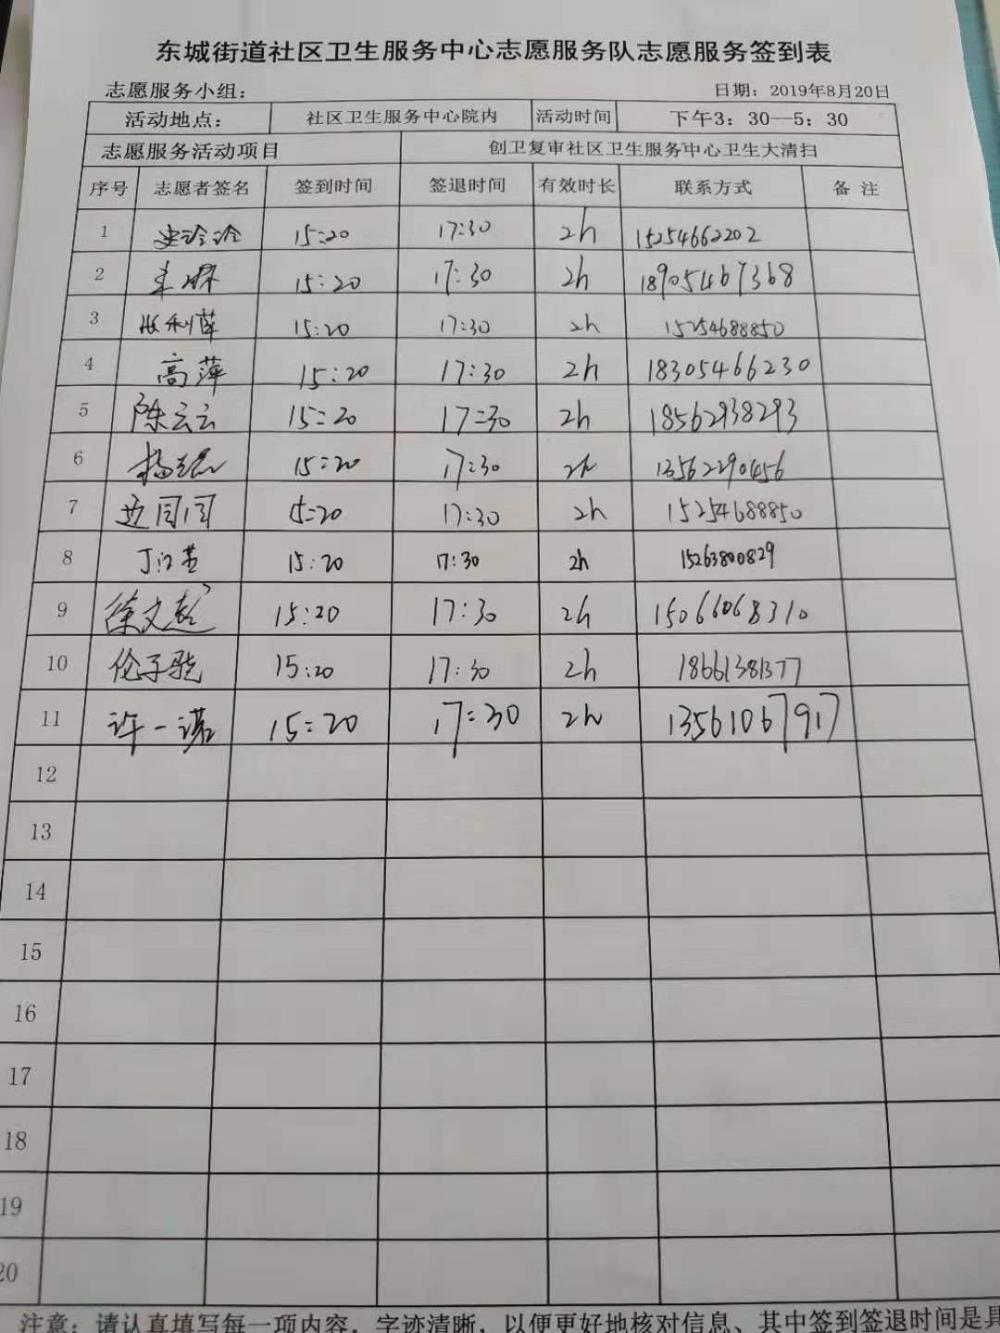 东城街道社区卫生服务中心志愿服务队志愿服务签到表
志愿服务小组： 日期：2019年8月20日
活动地点： 社区卫生服务中心院内 活动时间 下午3：30—5：30
志愿服务活动项目 创卫复审社区卫生服务中心卫生大清扫
序号 志愿者签名 签到时间 签退时间 有效时长 联系方式 备注
1 15:20 17:30 2h 15254662202
2 15:20 17:30 2h 18905467368
3 15:20 17:30 2h 15254688850
4 高萍 15:20 17:30 2h 18305466230
5 陈云云 15:20 17:30 2h 18562938293
6 15:20 17:30 2h 13562290456
7 15:20 17:30 2h 15254688850
8 15:20 17:30 2h 15263800829
9 徐文彭 15:20 17:30 2h 15066068310
10 伦子骁 15:20 17:30 2h 18661381377
11 许一诺 15:20 17:30 2h 13561067917
12
13
14
15
16
17
18
19
20
注意：请认真填写每一项内容，字迹清晰，以便更好地核对信息、其中签到签退时间是具